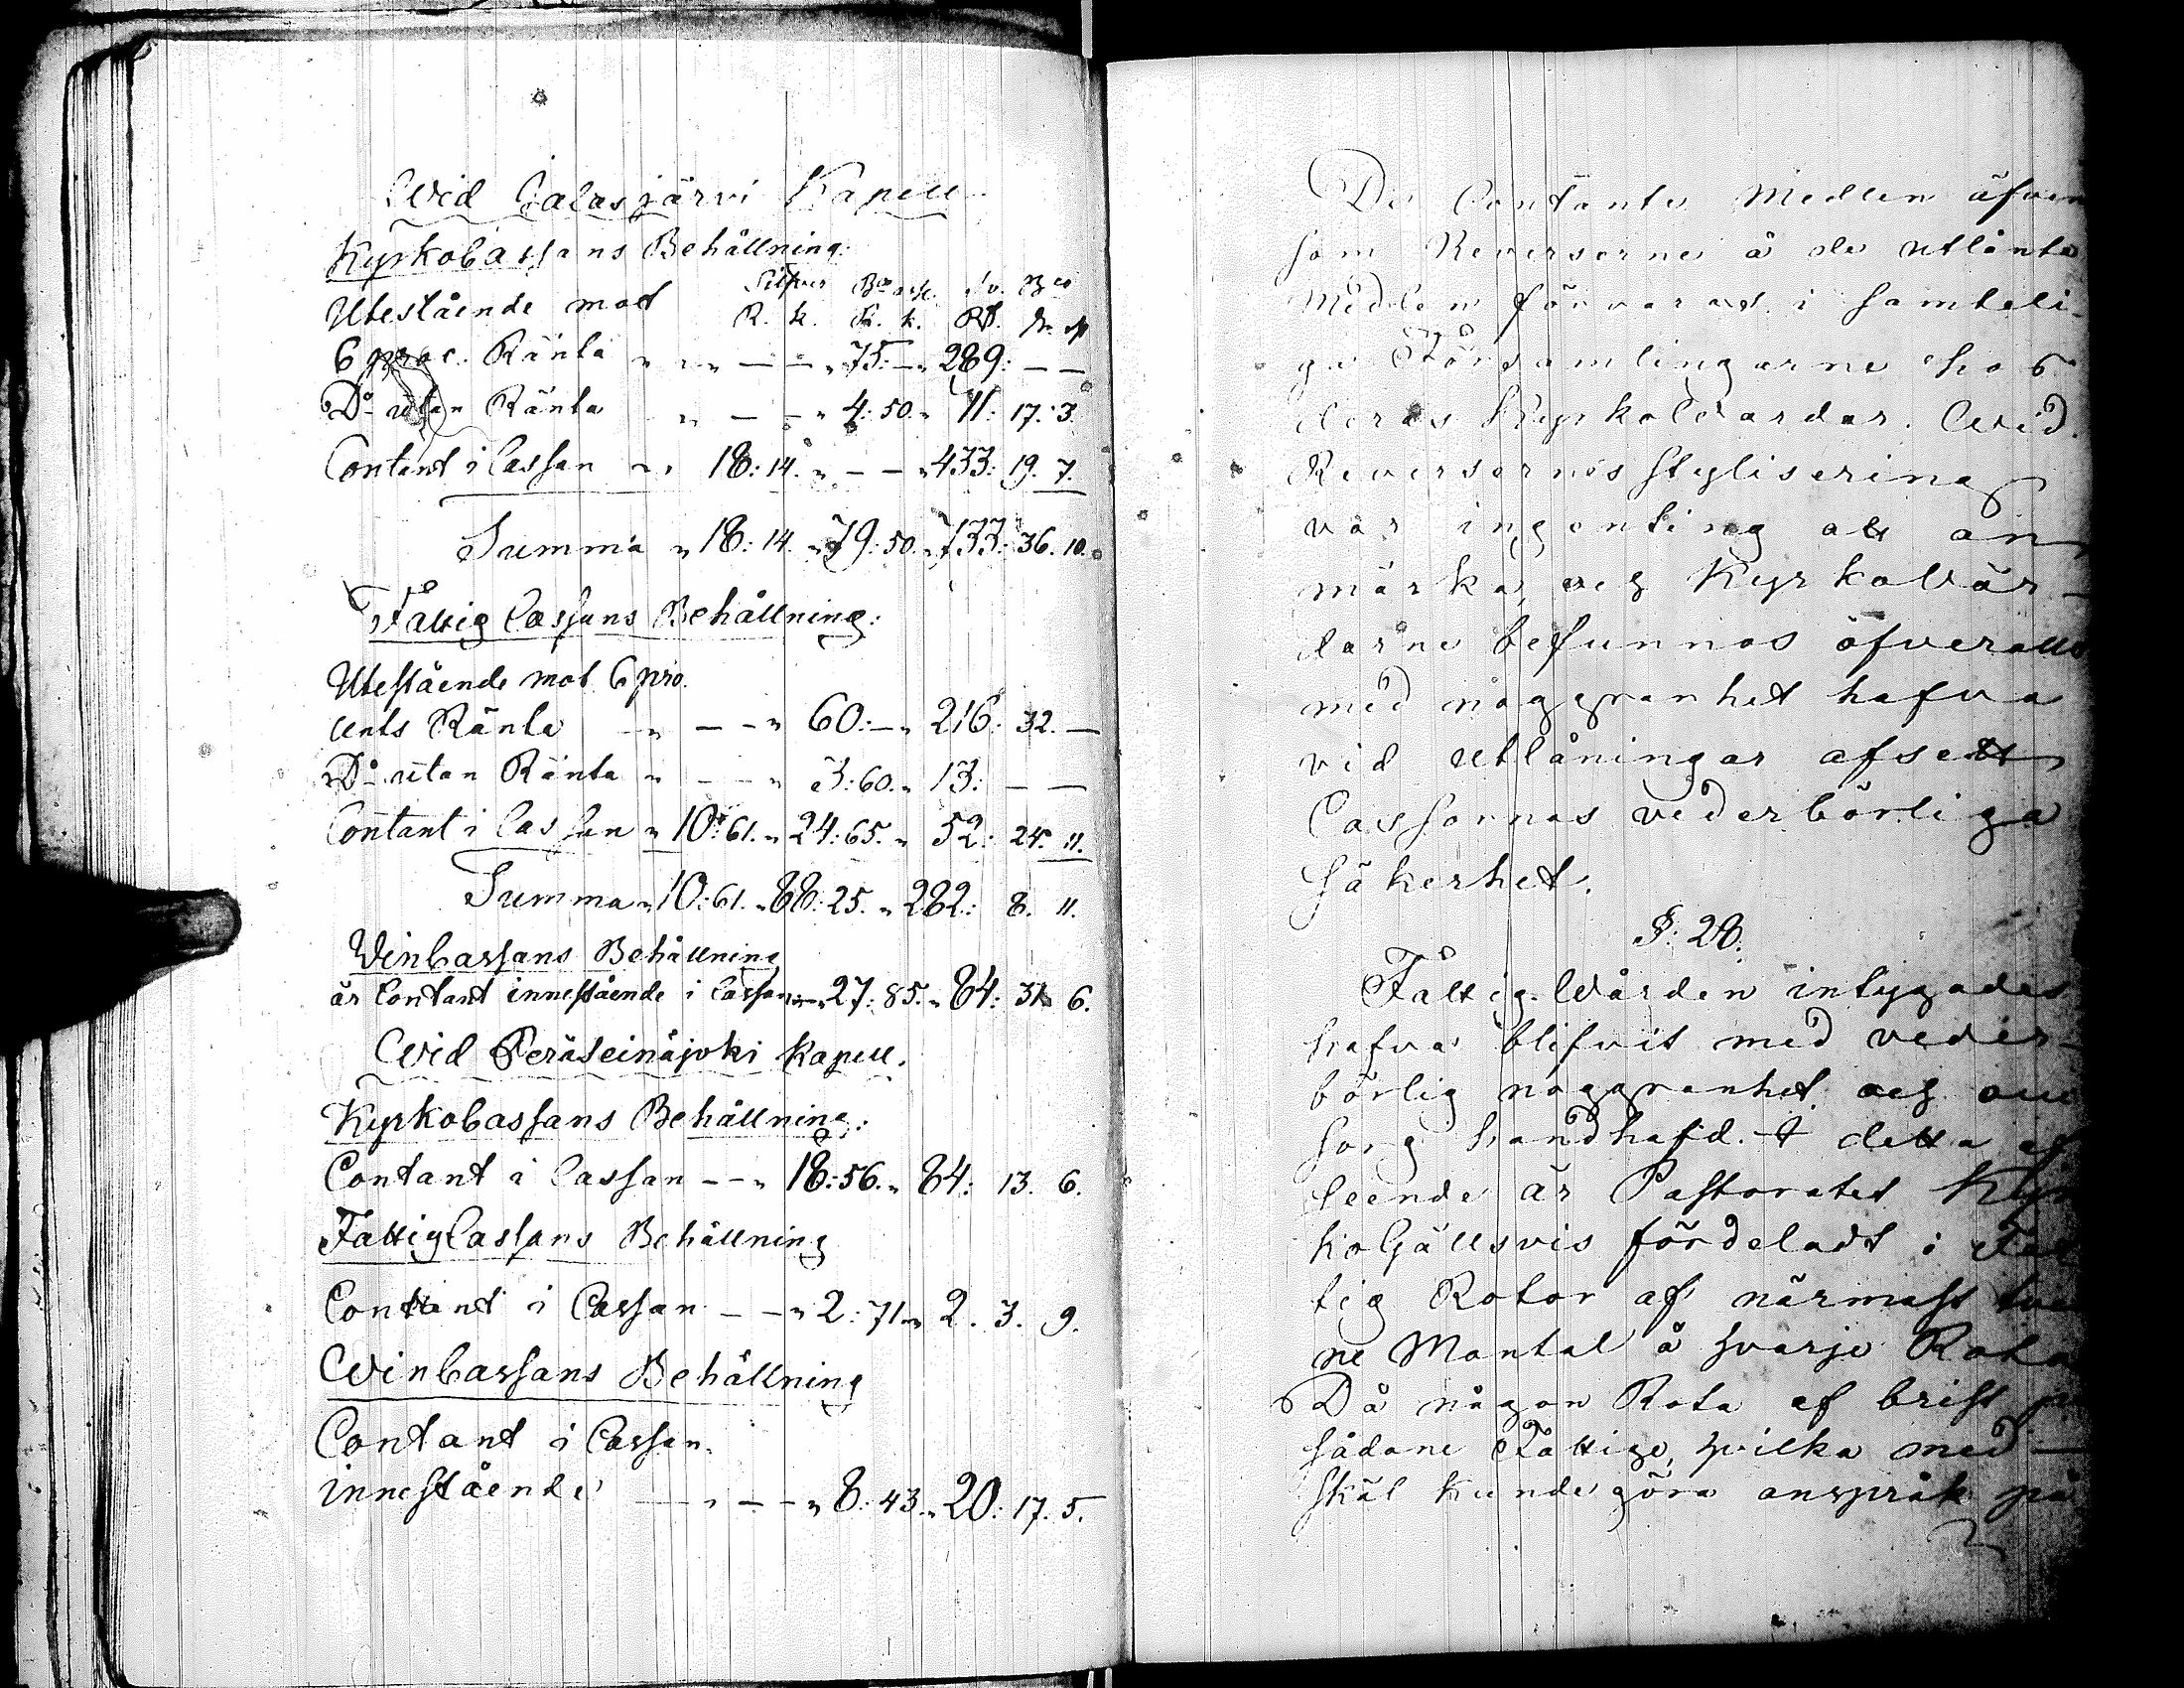 Wid Jalasjärvi Kapell
KyrkoCassans Behållning:
Silfver Bco ass. Sv. Bco
Utestående mot R. k. R. k. Rd. sk. rst
6 proc. Ränta „ „ „ — — „ 75: — „ 289: — —
Do utan Ränta „ — — „ 4: 50. „ 11: 17. 3.
Contant i Cassan „ „ 18: 14. „ — — „ 433: 19. 7.
Summa „ 18: 14. „ 79: 50. „ 733: 36. 10.
Fattig Cassans Behållning:
Utestående mot 6 pro.
cents Ränta „ — — „ 60: — „ 216: 32. —
Do utan Ränta „ — — „ 3: 60. „ 13: — —
Contant i Cassan „ 10: 61. „ 24: 65. „ 52: 24. 11.
Summa „ 10: 61. „ 88: 25. „ 282: 8. 11.
WinCassans Behållning
är Contant innestående i Cassan „ 27: 85. „ 84: 31. 6.
Wid Peräseinäjoki Kapell.
KyrkoCassans Behållning:
Contant i Cassan — — „ 18: 56. „ 84: 13. 6.
FattigCassans Behållning
Contant i Cassan — — „ 2: 71. „ 2. 3. 9.
WinCassans Behållning
Contant i Cassan.
innestående — „ — — „ 8: 43. „ 20: 17. 5.
De Contante Medlen äfven
som Reverserne å de utlånta
Medlen förvaras i samteli-
ge Församlingarne hos
deras KyrkoWärdar. Wid
Reversernes stylisering
var ingenting att an
märka, och KyrkoVär-
darne befunnos öfverallt
med noggranhet hafva
vid utlåningar afsett
Cassornas vederbörliga
säkerhet.
§. 28.
Fattig-Wården intygades
hafva blifvit med veder-
börlig noggranhet och om
sorg handhafd. I detta af
seende är Pastoratet Kyr
koGällsvis fördeladt i Fat
tig Rotor af närmast tvän
ne Mantal å hvarje Rota
Då någon Rota af brist på
sådane Fattige, hvilka med
skäl kunde göra anspråk på